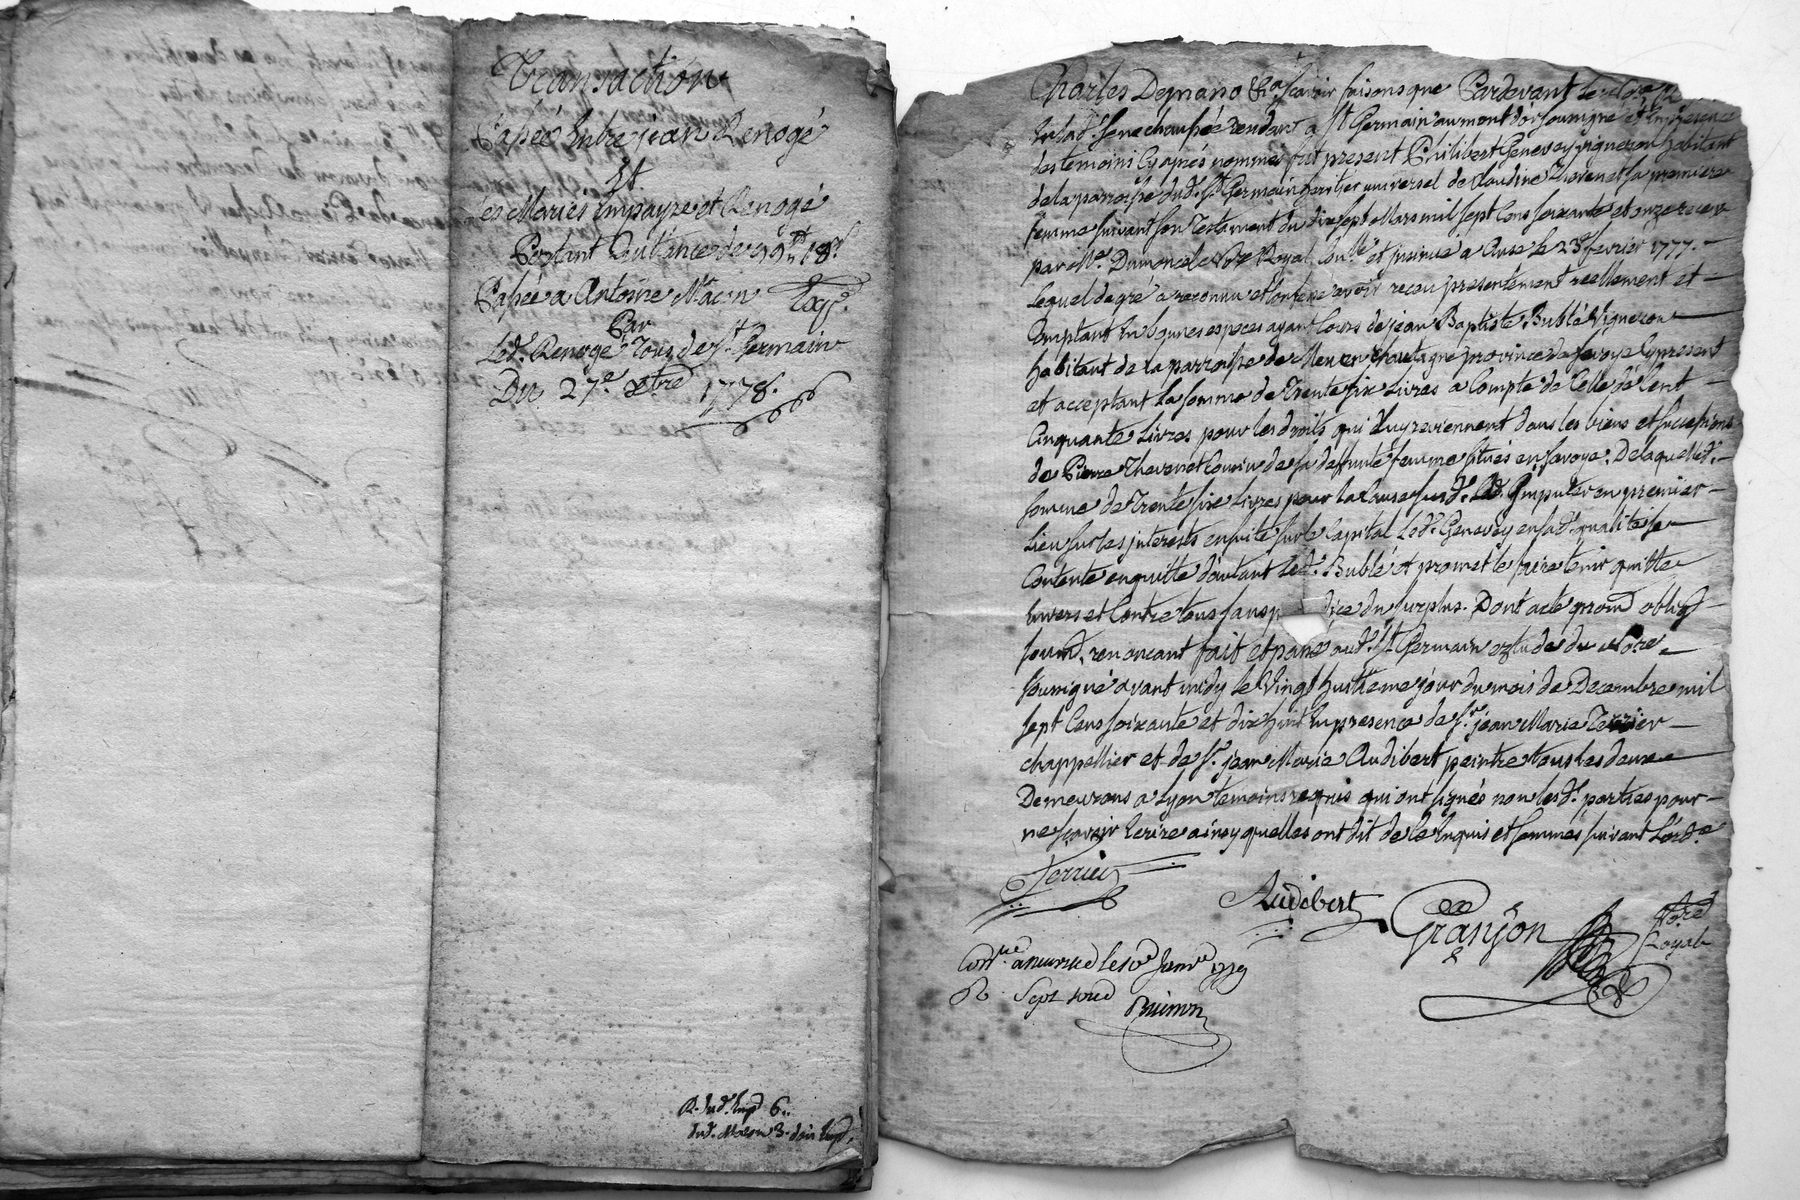 Transaction
Passée Entre jean Renogé
Et
Les Mariés impayre et Renogé
Portant Quittance de 99ᵗᵗ 18ˢ
Passée a Antoine Macon
Par
Led. Renogé Tous de St. Germain
Du 27e. Xbre 1778.
R. dud. 6..
dud. Macon 3.
Charles Degnano sçavoir faisons que Pardevant le
En lad. senechaussée residant a St Germain au mont d'or soussigné et En presence
des temoins Cy aprés nommés fut present Philibert Genevey vigneron habitant
de la parroisse dud. St Germain heritier universel de Claudine Thevenet sa premiere
femme suivant son Testament du dix sept Mars mil sept Cens soixante et onze receu
par Me. Dumoncel Nore Royal, Conllé et insinué a Anse le 23e fevrier 1777.
Lequel de gré a reconnu et Confessé avoir receu presentement reellement et
Comptant En bonnes especes ayant Cours de jean Baptiste Bublé Vigneron
habitant de la parroisse de en Chautagne province de Savoye Cy present
et acceptant La somme de Trente six Livres a Compte de Celle de Cent
Cinquante Livres pour les droits qui Luy reviennent dans les biens et successions
de Pierre Thevenet Cousin de sa deffunte femme situés en Savoye, De laquelle d.
somme de Trente six livres pour la Cause susd. Led. imputer en premier
Lieu sur les interests ensuite sur le Capital Led. Genevey en sad. qualité se
Contente en quitte d'autant led. Bublé et promet le faire tenir quitte
Envers et Contre tous sans p dice du surplus. Dont acte prom oblig
soum, renonçant fait et passé aud. St Germain etude du Nore
soussigné avant midy le Vingt huitieme jour du mois de Decembre mil
sept Cens soixante et dix huit En presence de Sr. jean Marie Terrier
chappellier et de Sr. jean Marie Audibert peintre tous les deux
Demeurans a Lyon temoins requis qui ont signés non lesd. parties pour
ne sçavoir Ecrire ainsy quelles ont dit de ce Enquis et sommés suivant L'ordce
Terrier
Audibert
Granjon
Nore
Royal
Conlle a le 10e Janvr 1779
R. Sept sous